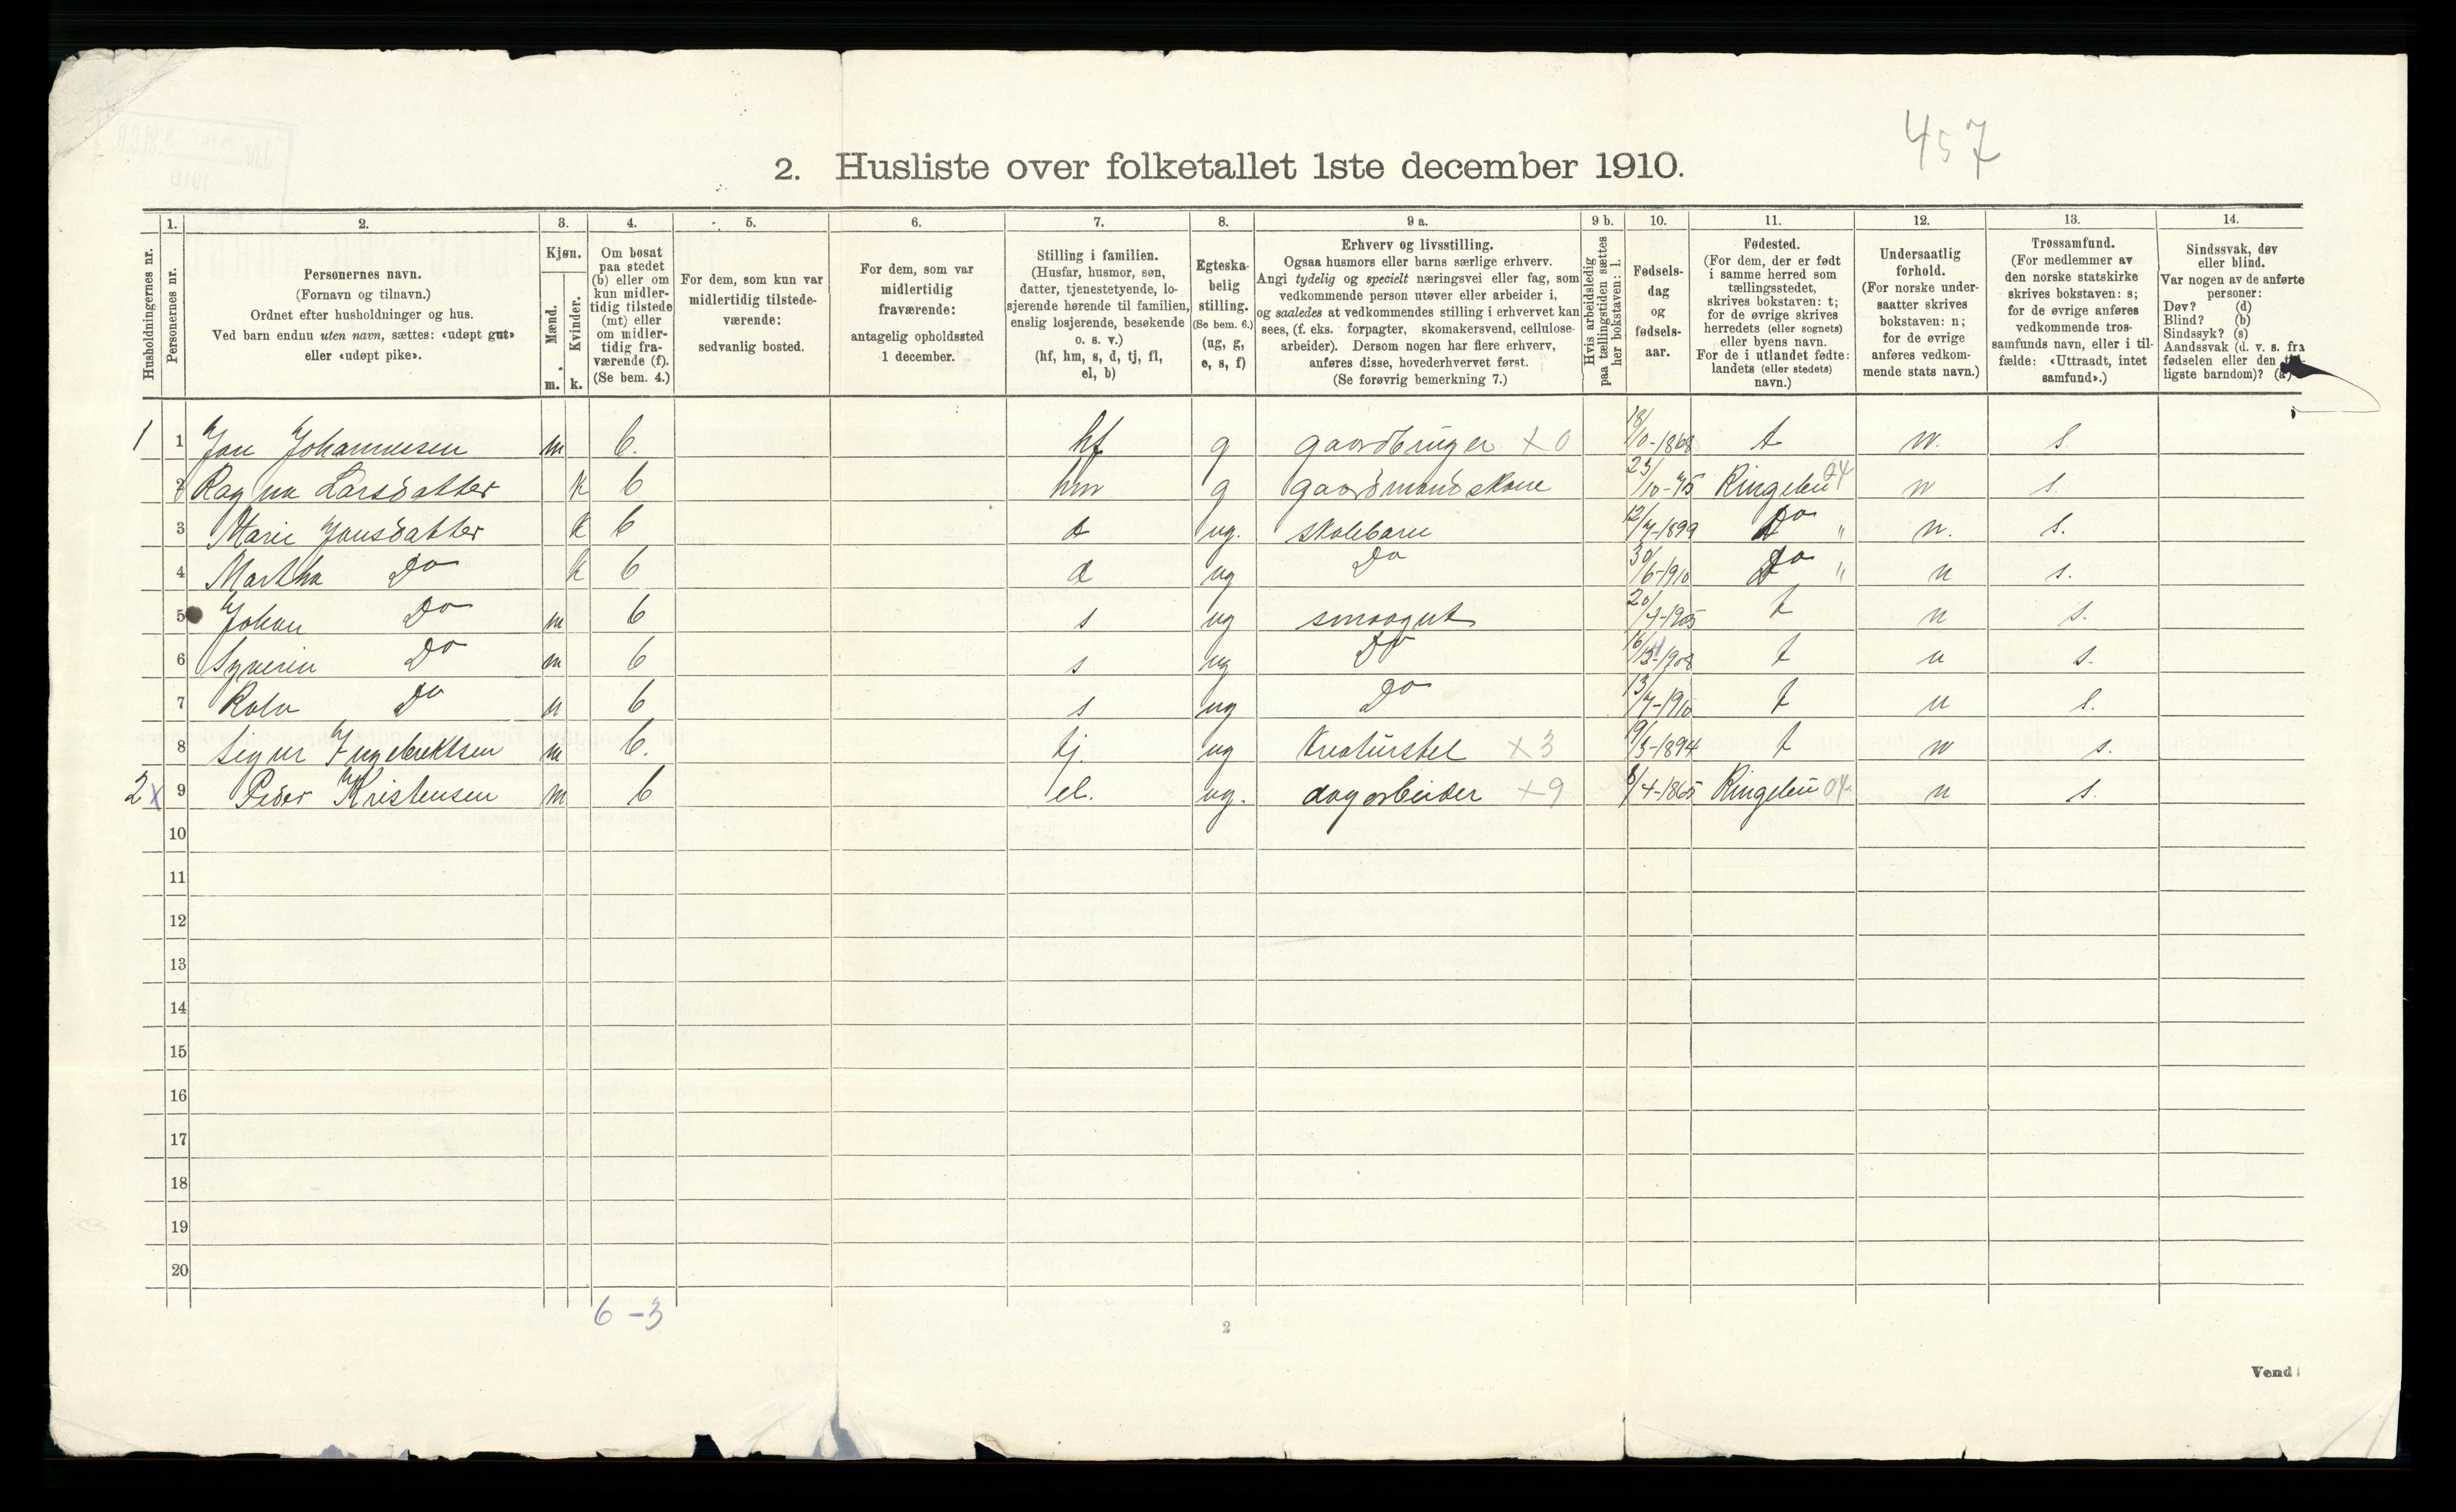 457
2. Husliste over folketallet 1ste december 1910.
Husholdningernes nr.
1.
Personernes nr.
2.
Personernes navn.
(Fornavn og tilnavn.)
Ordnet efter husholdninger og hus.
Ved barn endnu uten navn, sættes: «udøpt gut»
eller «udøpt pike».
3.
Kjøn.
Mænd.
Kvinder.
m. k.
4.
Om bosat
paa stedet
(b) eller om
kun midler-
tidig tilstede
(mt) eller
om midler-
tidig fra-
værende (f).
(Se bem. 4.)
5.
For dem, som kun var
midlertidig tilstede-
værende:
sedvanlig bosted.
6.
For dem, som var
midlertidig
fraværende:
antagelig opholdssted
1 december.
7.
Stilling i familien.
(Husfar, husmor, søn,
datter, tjenestetyende, lo-
sjerende hørende til familien,
enslig losjerende, besøkende
o. s. v.)
(hf, hm, s, d, tj, fl,
el, b)
8.
Egteska-
belig
stilling.
(Se bem. 6.)
(ug, g,
e, s, f)
9 a.
Erhverv og livsstilling.
Ogsaa husmors eller barns særlige erhverv.
Angi tydelig og specielt næringsvei eller fag, som
vedkommende person utøver eller arbeider i,
og saaledes at vedkommendes stilling i erhvervet kan
sees, (f. eks. forpagter, skomakersvend, cellulose-
arbeider). Dersom nogen har flere erhverv,
anføres disse, hovederhvervet først.
(Se forøvrig bemerkning 7.)
9 b.
Hvis arbeidsledig
paa tællingstiden sættes
her bokstaven: l.
10.
Fødsels-
dag
og
fødsels-
aar.
11.
Fødested.
(For dem, der er født
i samme herred som
tællingsstedet,
skrives bokstaven: t;
for de øvrige skrives
herredets (eller sognets)
eller byens navn.
For de i utlandet fødte:
landets (eller stedets)
navn.)
12.
Undersaatlig
forhold.
(For norske under-
saatter skrives
bokstaven: n;
for de øvrige
anføres vedkom-
mende stats navn.)
13.
Trossamfund.
(For medlemmer av
den norske statskirke
skrives bokstaven: s;
for de øvrige anføres
vedkommende tros-
samfunds navn, eller i til-
fælde: «Uttraadt, intet
samfund».)
14.
Sindssvak, døv
eller blind.
Var nogen av de anførte
personer:
Døv? (d)
Blind? (b)
Sindssyk? (s)
Aandssvak (d. v. s. fra
fødselen eller den
ligste barndom)? (a)
1 1 Jon Johannesen m b. hf g gaardbruger X0 18/10-1868 t n. s.
2 Ragna Larsdatter k b hm g gaardmandskone 23/10-75 Ringebu 04 n s.
3 Marie Jonsdatter k b d ug. skolebarn 12/7-1899 Do " n. s.
4 Martha Do k b d ug Do 30/6-1910 Do " n s.
5 Johan Do m b s ug smaagut 20/7-1905 t n s.
6 Syverin Do m b s ug Do t n s.
7 Rolv Do m b s ug Do 13/7-1910 t n s.
8 Sigur Ingebrektsen m b. tj. ug Kreaturstel X3 19/3-1894 t n s.
2 X 9 Peder Kristensen m b el. ug. dagarbeider X9 8/4-1865 Ringebu 04 n s.
10
11
12
13
14
15
16
17
18
19
20
6-3
2
Vend